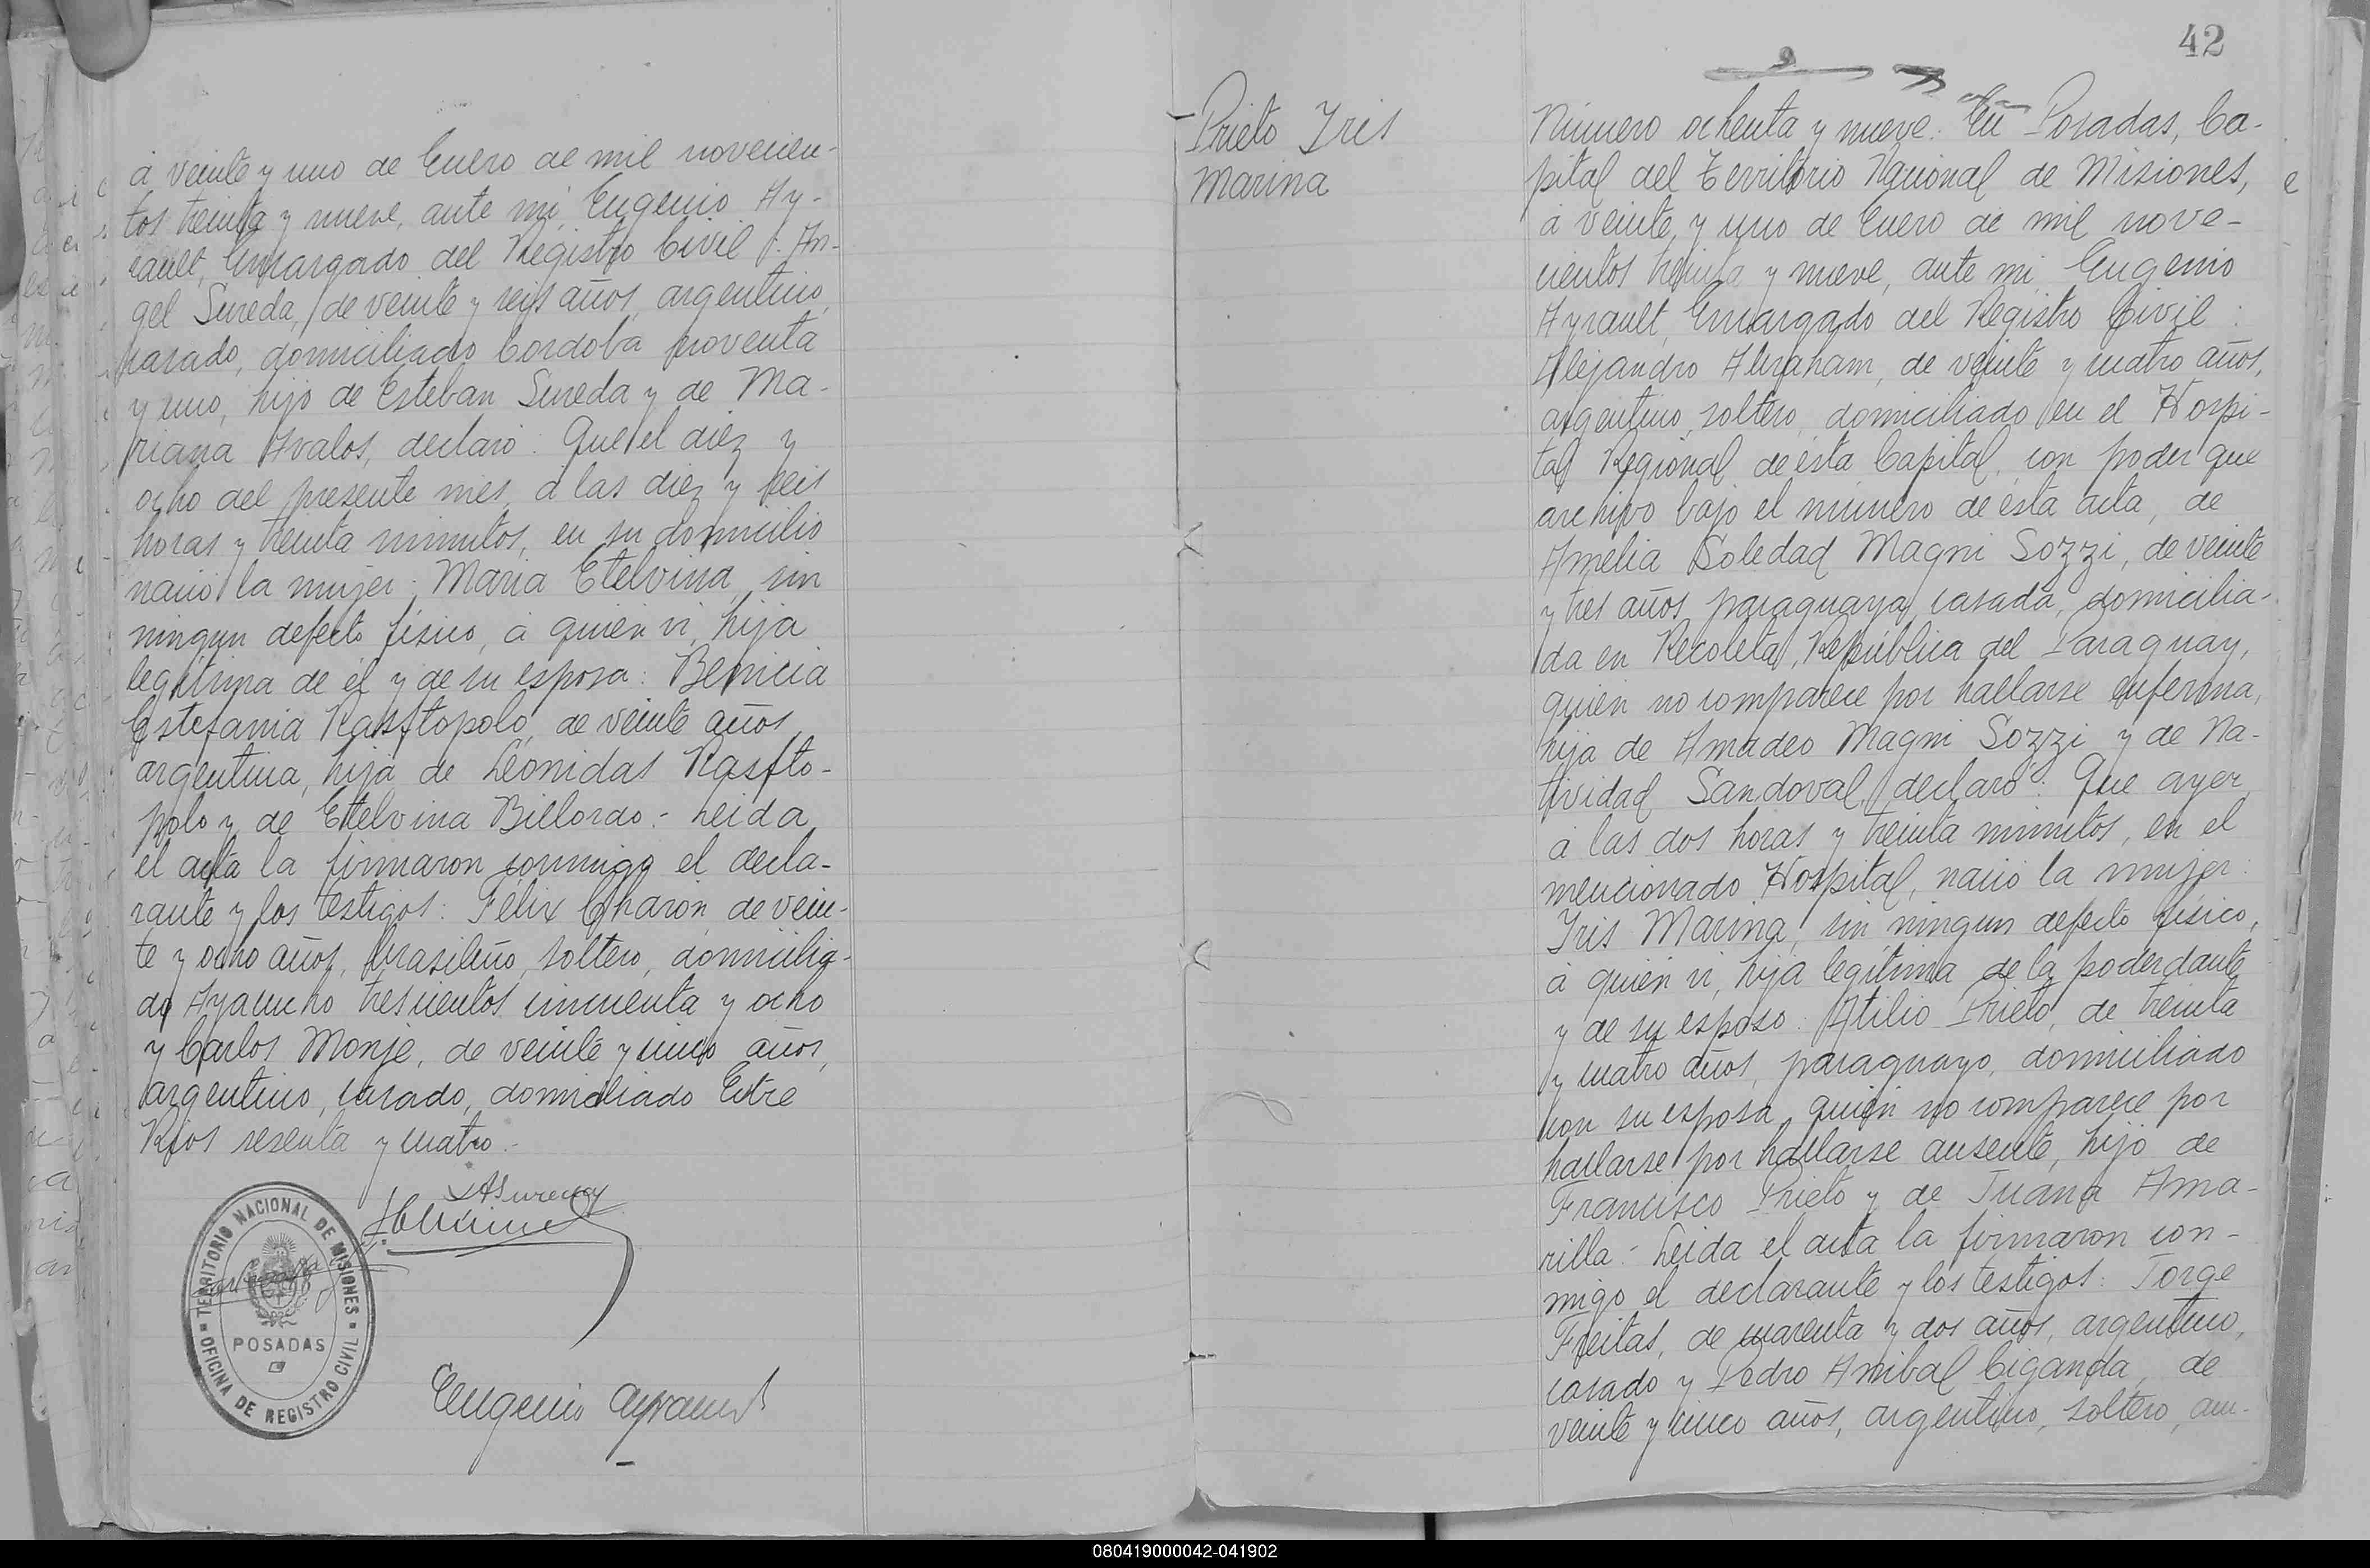 á veinte y uno de Enero de mil novecien-
tos treinta y nueve, ante mi, Eugenio Ay-
rault, Encargado del Registro Civil: An-
gel Sureda, de veinte y seis años, argentino,
casado, domiciliado Cordoba noventa
y uno, hijo de Esteban Sureda y de Ma-
riana Avalos, declaró: Que el diez y
ocho del presente mes, á las diez y seis
horas y treinta minutos, en su domicilio
nació la mujer: Maria Etelvina, sin
ningun defecto físico, á quien vi, hija
legítima de él y de su esposa: Benicia
Estefania Rasftopolo, de veinte años,
argentina, hija de Leonidas Rasfto-
polo y de Etelvina Billordo.- Leida
el acta la firmaron conmigo el decla-
rante y los testigos: Félix Charon, de vein-
te y ocho años, brasileño, soltero, domicilia-
do Ayacucho trescientos cincuenta y ocho
y Carlos Monje, de veinte y cinco años,
argentino, casado, domiciliado Entre
Rios sesenta y cuatro.-
TERRITORIO NACIONAL DE MISIONES
POSADAS
OFICINA DE REGISTRO CIVIL
Eugenio Ayrault
42
Prieto Iris
Marina
Número ochenta y nueve: En Posadas, Ca-
pital del Territorio Nacional de Misiones,
á veinte y uno de Enero de mil nove-
cientos treinta y nueve, ante mi, Eugenio
Ayrault, Encargado del Registro Civil:
Alejandro Abraham, de veinte y cuatro años,
argentino, soltero, domiciliado en el Hospi-
tal Regional de ésta Capital, con poder que
archivo bajo el número de ésta acta, de
Amelia Soledad Magni Sozzi, de veinte
y tres años, paraguaya, casada, domicilia-
da en Recoleta, República del Paraguay,
quien no comparece por hallarse enferma,
hija de Amadeo Magni Sozzi y de Na-
tividad Sandoval, declaró: Que ayer,
á las dos horas y treinta minutos, en el
mencionado Hospital, nació la mujer:
Iris Marina, sin ningun defecto físico,
á quien vi, hija legítima de la poderdante
y de su esposo: Atilio Prieto, de treinta
y cuatro años, paraguayo, domiciliado
con su esposa, quien no comparece por
hallarse por hallarse ausente, hijo de
Francisco Prieto y de Juana Ama-
rilla.- Leida el acta la firmaron con-
migo el declarante y los testigos: Jorge
Freitas, de cuarenta y dos años, argentino,
casado y Pedro Anibal Ciganda, de
veinte y cinco años, argentino, soltero, am-
080419000042-041902